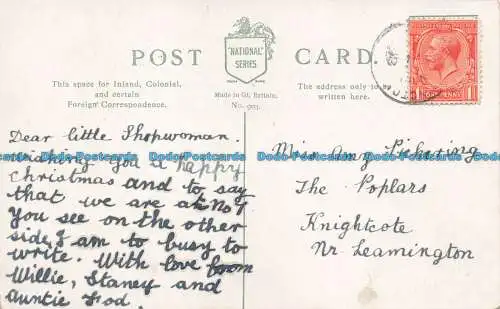 POST CARD
"NATIONAL"
SERIES
This space for Inland, Colonial,
and certain
Foreign Correspondence.
Made in Gt. Britain.
No. 903.
The address only to be
written here.
ONE PENNY
Dear little Shopwoman.
Wishing you a happy
Christmas and to say
that we are at No 7
You see on the other
side, I am to busy to
write. With love from
Willie, Staney and
Auntie
Miss Amy Pickering
The Poplars
Knightcote
Nr Leamington
DodoPostcards DodoPostcards DodoPostcards DodoPostcards